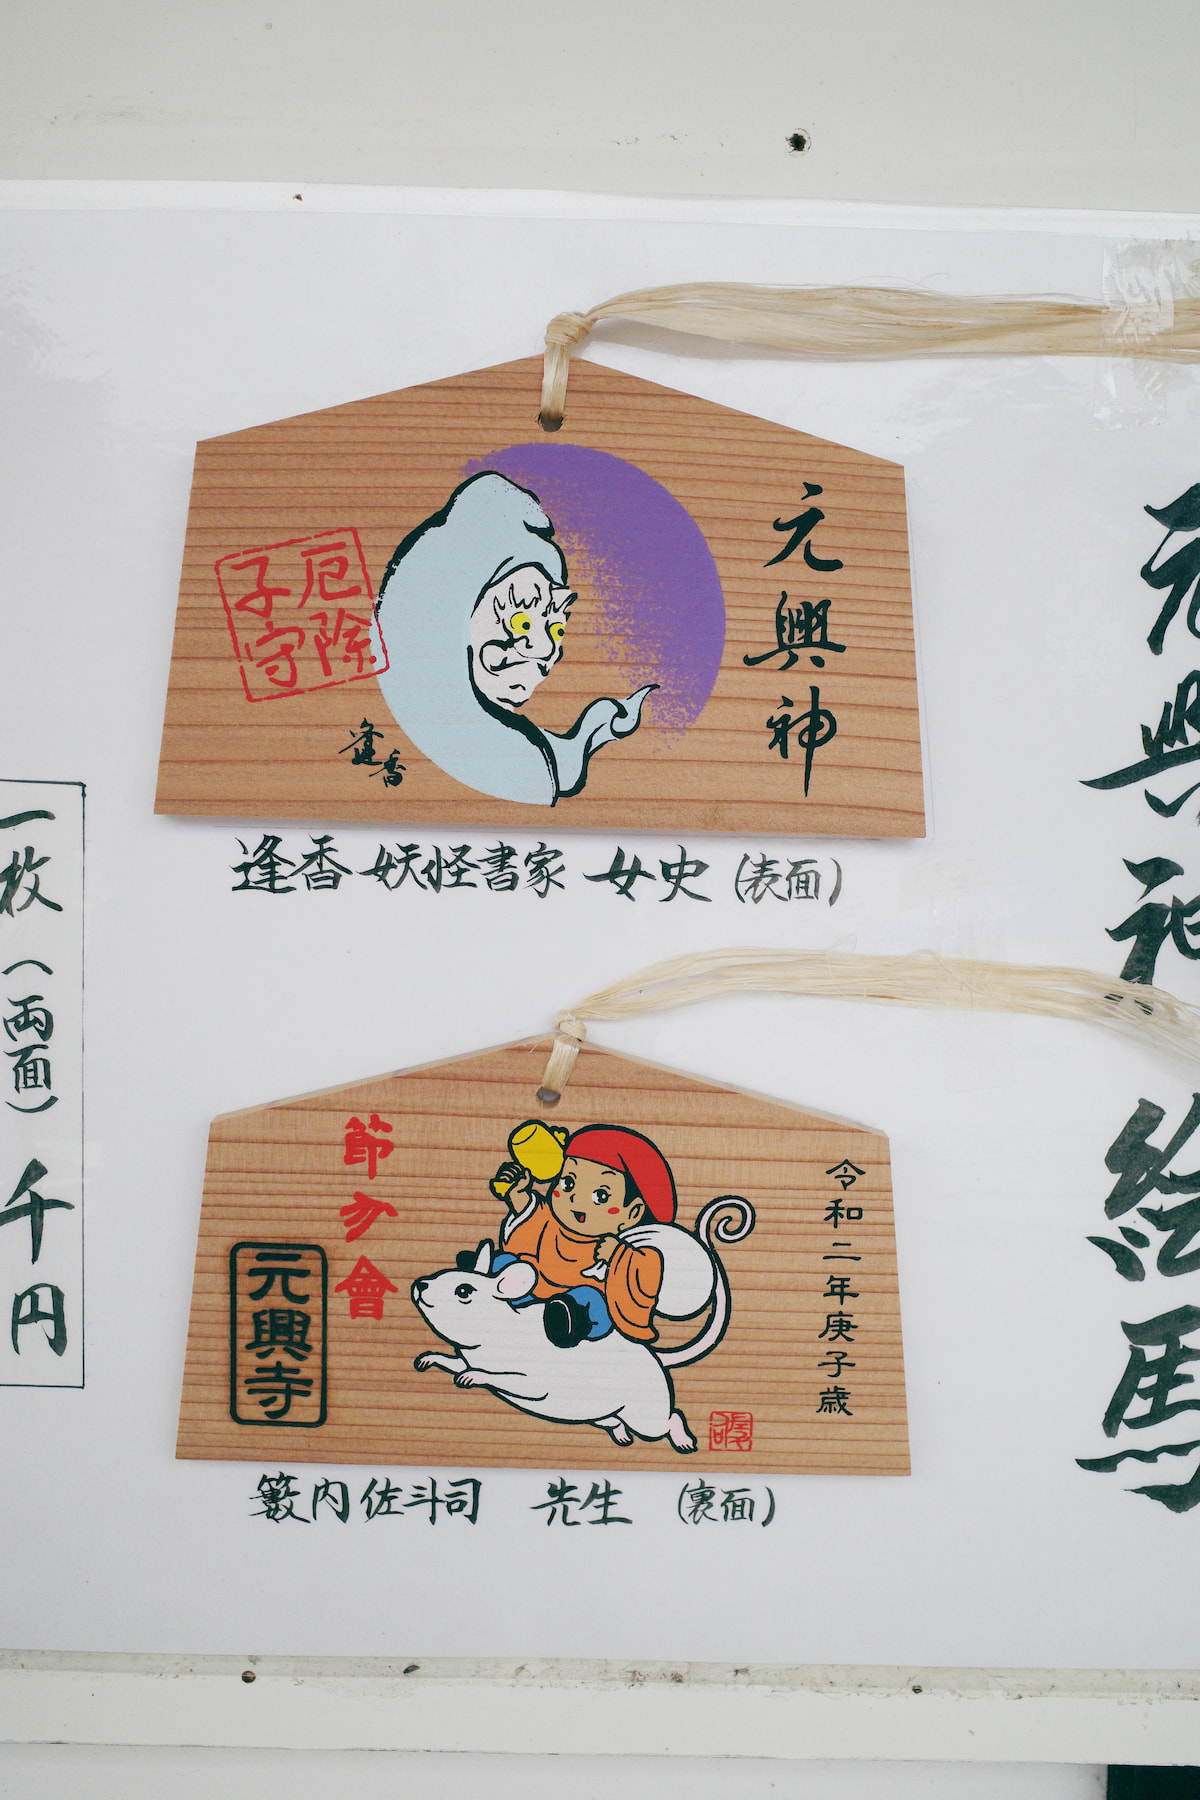 元興神絵馬
元興神
厄除
子守
逢香
逢香 妖怪書家 女史 (表面)
令和二年庚子歳
節分會
元興寺
籔内佐斗司 先生 (裏面)
一枚(両面)千円